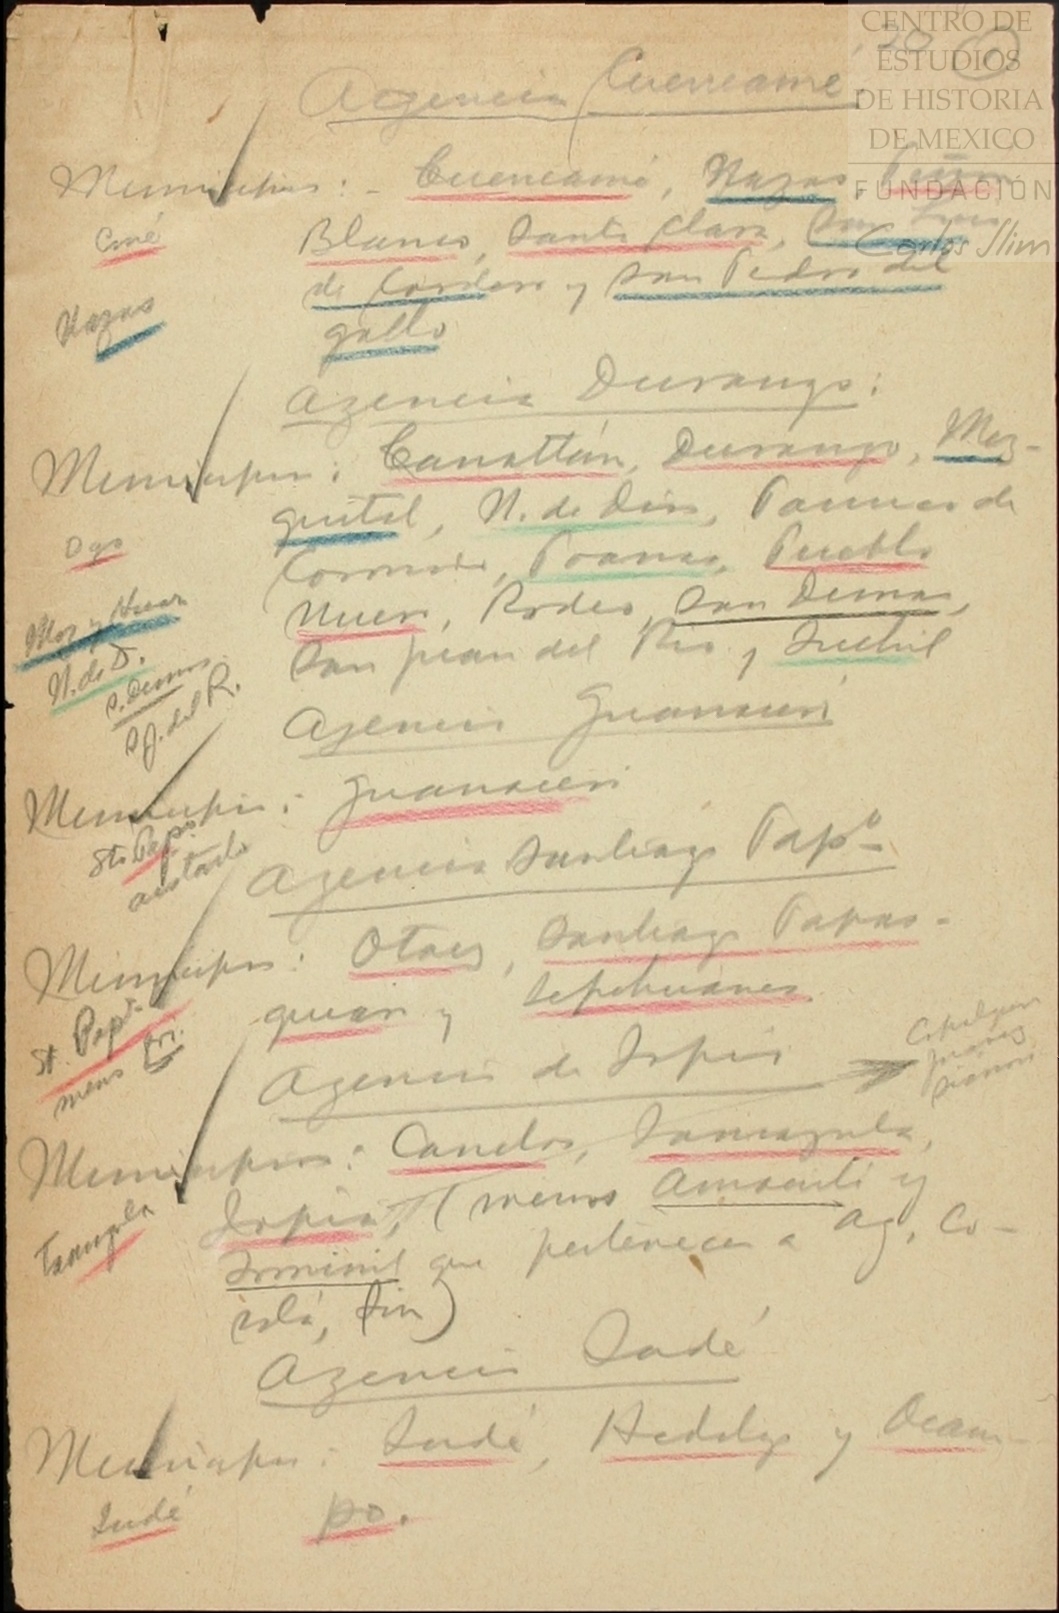 CENTRO DE
ESTUDIOS
DE HISTORIA
DE MEXICO
FUNDACIÓN
Carlos Slim
Agencia Cuencamé
Municipios: - Cuencamé, Nazas, Peñón
Cmé
Blanco, Santa Clara, San Luis
de Cordero y San Pedro del
Nazas
gallo
Agencia Durango:
Municipios: Canatlán, Durango, Mez-
quital, N. de Dios, Pánuco de
Dgo
Coronado, Poanas, Pueblo
Mez y Huaz
Nuevo, Rodeo, San Dimas,
N. de D.
San Juan del Río y Súchil
S. Dimas
S. J. del R.
Agencia Guanaceví
Municipio: Guanaceví
Sto Papo
Agencia Santiago Papº
Municipios: Otaez, Santiago Papas-
quiaro y Tepehuanes
St. Papº
menos
Agencia de Topia
Copalquin
Municipios: Canelas, Tamazula,
Topia, (menos Amacuili y
Tamzula
que pertenecen a Ag. Co-
salá, Sin)
Agencia Indé
Municipios: Indé, Hidalgo y Ocam-
Indé
po.